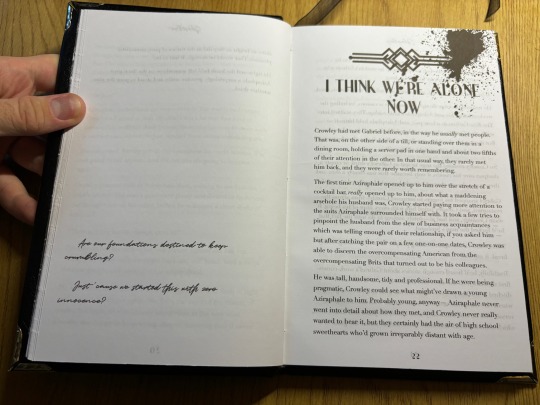 Are our foundations destined to keep
crumbling?
Just 'cause we started this with zero
innocence?
I THINK WE'RE ALONE
NOW
Crowley had met Gabriel before, in the way he usually met people.
That was, on the other side of a till, or standing over them in a
dining room, holding a server pad in one hand and about two fifths
of their attention in the other. In that usual way, they rarely met
him back, and they were rarely worth remembering.
The first time Aziraphale opened up to him over the stretch of a
cocktail bar, really opened up to him, about what a maddening
arsehole his husband was, Crowley started paying more attention to
the suits Aziraphale surrounded himself with. It took a few tries to
pinpoint the husband from the slew of business acquaintances
which was telling enough of their relationship, if you asked him
but after catching the pair on a few one-on-one dates, Crowley was
able to discern the overcompensating American from the
overcompensating Brits that turned out to be his colleagues.
He was tall, handsome, tidy and professional. If he were being
pragmatic, Crowley could see what might've drawn a young
Aziraphale to him. Probably young, anyway – Aziraphale never
went into detail about how they met, and Crowley never really
wanted to hear it, but they certainly had the air of high school
sweethearts who'd grown irreparably distant with age.
22